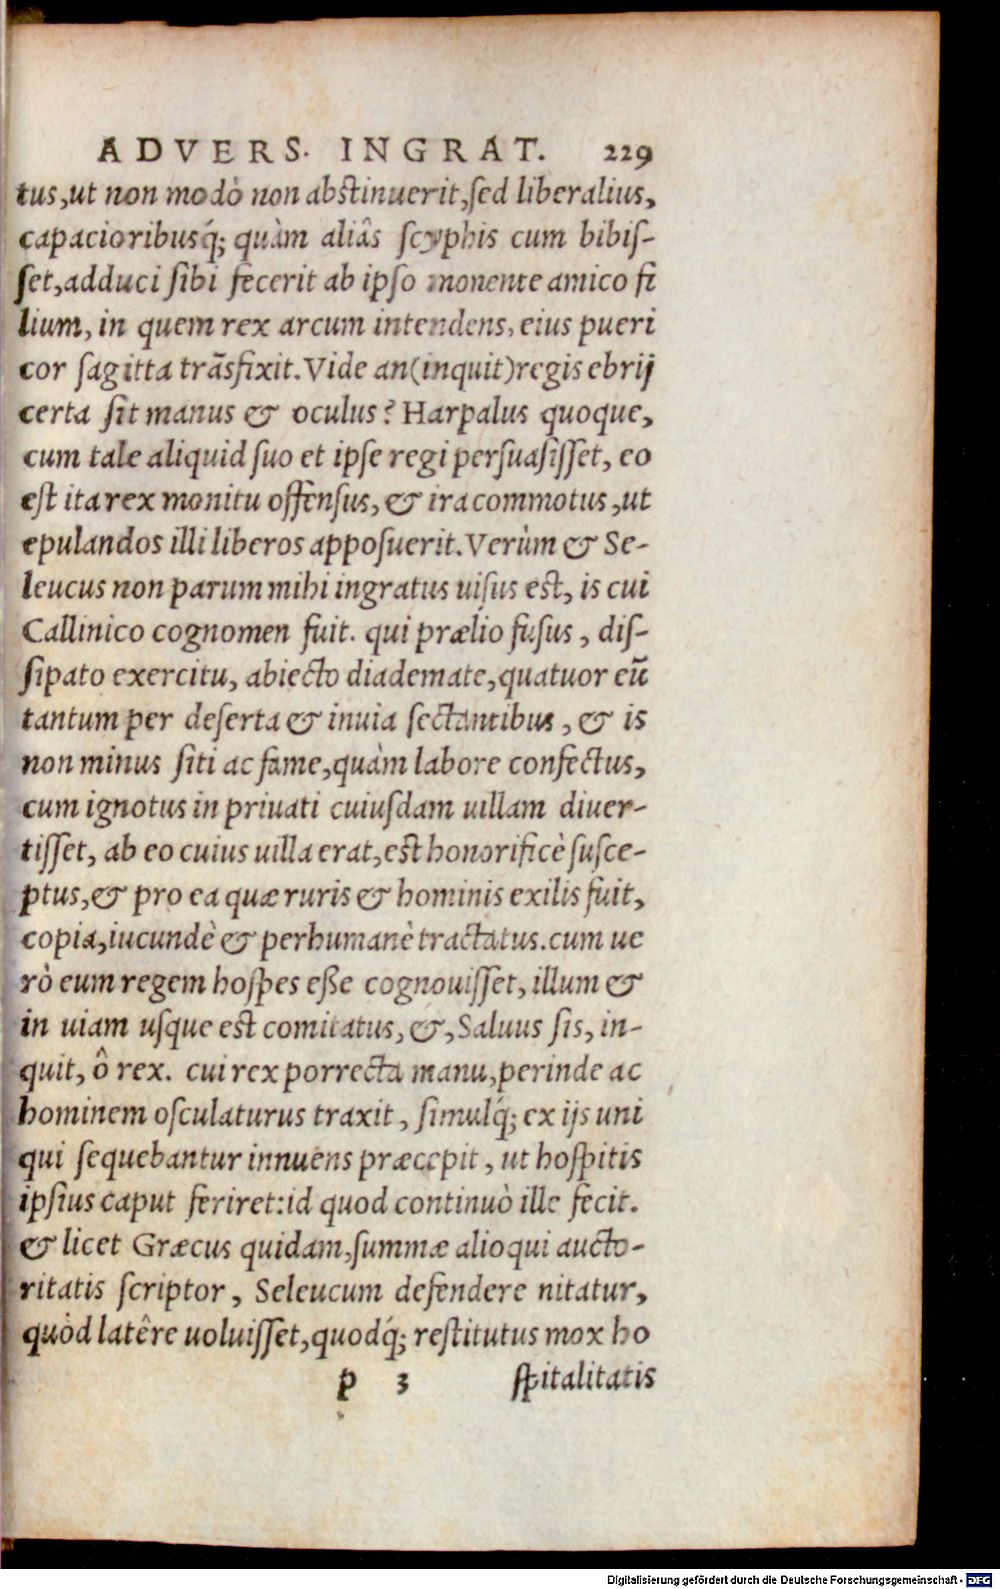 ADVERS. INGRAT. 229
tus,ut non modò non abstinuerit,sed liberalius,
capacioribusq́; quàm aliâs scyphis cum bibis-
set,adduci sibi fecerit ab ipso monente amico fi
lium, in quem rex arcum intendens, eius pueri
cor sagitta trãsfixit. Vide an(inquit)regis ebrij
certa sit manus & oculus? Harpalus quoque,
cum tale aliquid suo et ipse regi persuasisset, eo
est ita rex monitu offensus, & ira commotus, ut
epulandos illi liberos apposuerit. Verùm & Se-
leucus non parum mihi ingratus uisus est, is cui
Callinico cognomen fuit. qui prælio fusus, dis-
sipato exercitu, abiecto diademate, quatuor eũ
tantum per deserta & inuia sectantibus, & is
non minus siti ac fame,quàm labore confectus,
cum ignotus in priuati cuiusdam uillam diuer-
tisset, ab eo cuius uilla erat,est honorificè susce-
ptus,& pro ea quæ ruris & hominis exilis fuit,
copia,iucundè & perhumanè tractatus.cum ue
rò eum regem hospes eße cognouisset, illum &
in uiam usque est comitatus, &, Saluus sis, in-
quit, ô rex. cui rex porrecta manu,perinde ac
hominem osculaturus traxit, simulq́; ex ijs uni
qui sequebantur innuens præcepit, ut hospitis
ipsius caput feriret:id quod continuò ille fecit.
& licet Græcus quidam,summæ alioqui aucto-
ritatis scriptor, Seleucum defendere nitatur,
quòd latêre uoluisset,quodq́; restitutus mox ho
p 3 spitalitatis
Digitalisierung gefördert durch die Deutsche Forschungsgemeinschaft - DFG